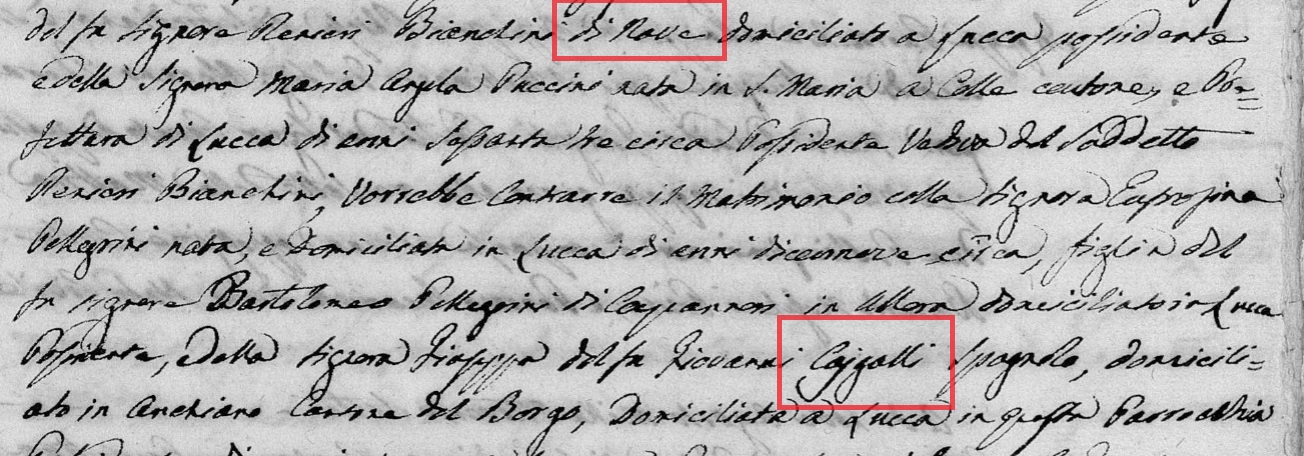 del fu Signore Renieri Bianchini di Nave domiciliato a Lucca possidente
e della Signora Maria Angela Puccini nata in S. Maria a Colle cantone, e Pre=
fettura di Lucca di anni sessanta tre circa Possidente Vedova del Suddetto
Renieri Bianchini, Vorrebbe Contrarre il Matrimonio colla Signora Eufrosina
Pellegrini nata, e Domiciliata in Lucca di anni diecennove circa, figlia del
fu Signore Bartolomeo Pellegrini di Capannori in allora domiciliato in Lucca
Possidente, e della Signora Giuseppa del fu Giovanni spagnolo, domicili=
ato in Anchiano Cantone del Borgo, Domiciliata a Lucca in questa Parrocchia